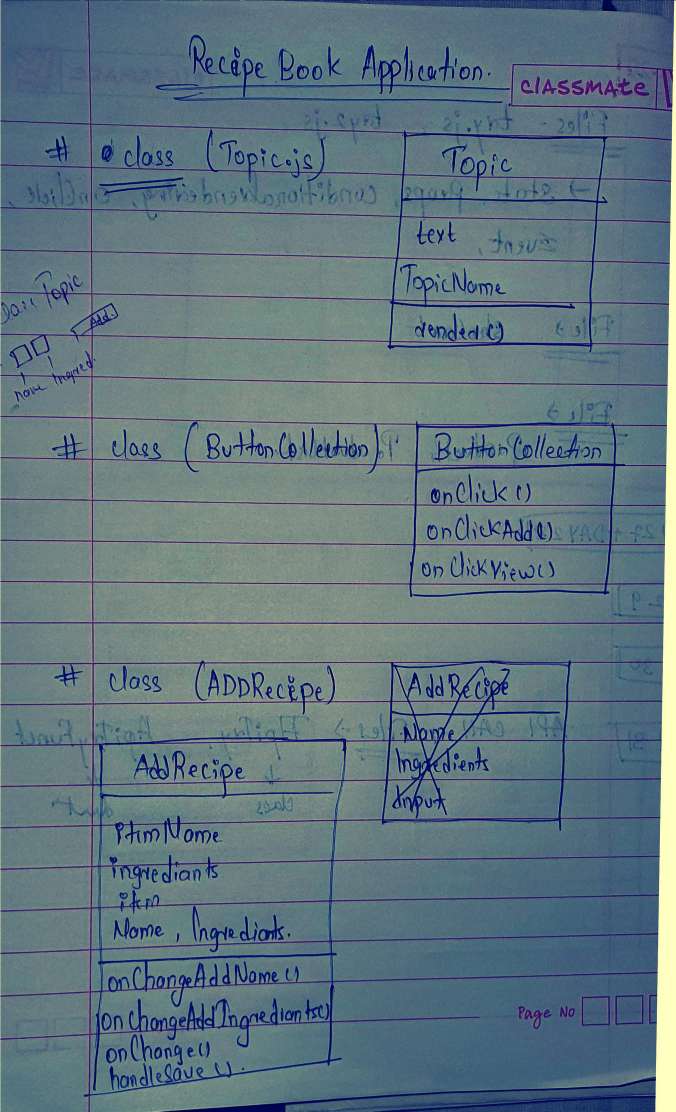 Recipe Book Application.
CLASSMATE
# class (Topic.js)
Topic
text
TopicName
render()
Topic
Add
name Ingred.
# class (ButtonCollection)
ButtonCollection
onClick()
onClickAdd()
onClickView()
# class (ADDRecipe)
AddRecipe
Name
Ingredients
Input
AddRecipe
itemName
ingrediants
item
Name, Ingrediants.
onChangeAddName()
onChangeAddIngrediants()
onChange()
handleSave().
Page No